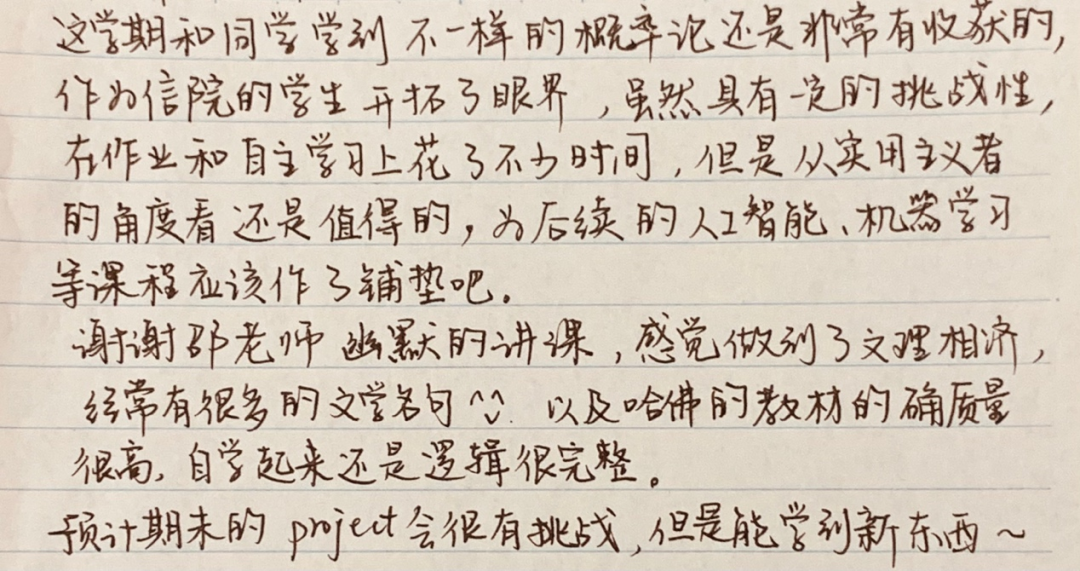 这学期和同学学到不一样的概率论还是非常有收获的,
作为信院的学生开拓了眼界,虽然具有一定的挑战性,
在作业和自主学习上花了不少时间,但是从实用主义者
的角度看还是值得的,为后续的人工智能、机器学习
等课程应该作了铺垫吧。
谢谢邵老师幽默的讲课,感觉做到了文理相济,
经常有很多的文学名句^^ 以及哈佛的教材的确质量
很高,自学起来还是逻辑很完整。
预计期末的 project 会很有挑战,但是能学到新东西~